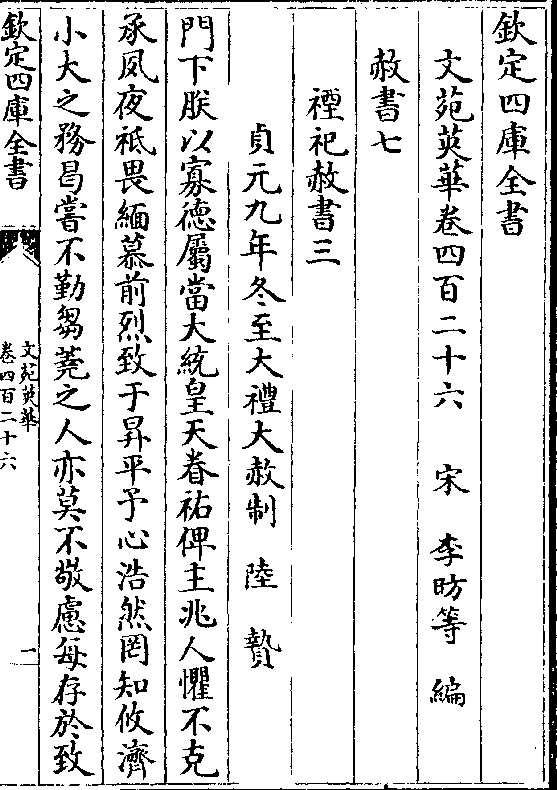 欽定四庫全書
文苑英華卷四百二十六 宋 李昉等 編
赦書七
禋祀赦書三
貞元九年冬至大禮大赦制 陸贄
門下朕以寡德屬當大統皇天眷祐俾主兆人懼不克
承夙夜祗畏緬慕前烈致于昇平予心浩然罔知攸濟
小大之務曷嘗不勤芻蕘之人亦莫不敬慮每存於致
欽定四庫全書
文苑英華
卷四百二十六
一